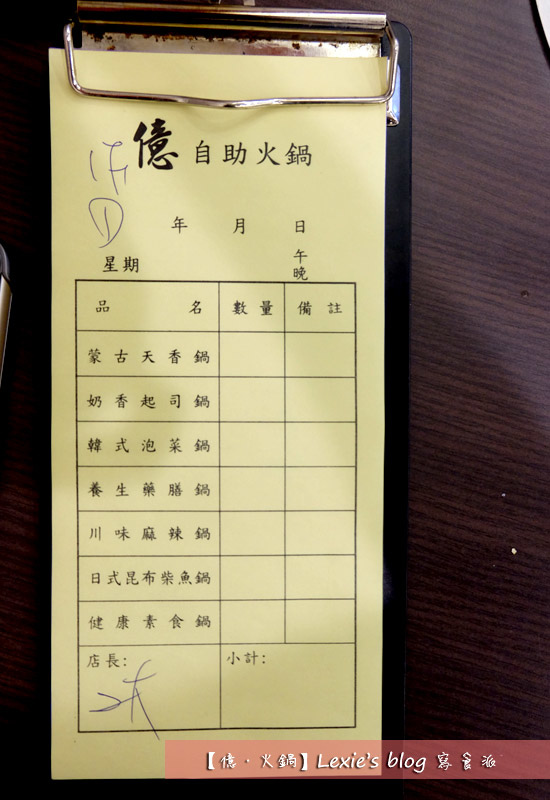 億 自助火鍋
年 月 日
星期
午
晚
品 名 數量 備註
蒙古天香鍋
奶香起司鍋
韓式泡菜鍋
養生藥膳鍋
川味麻辣鍋
日式昆布柴魚鍋
健康素食鍋
店長: 小計:
【億·火鍋】Lexie's blog 寫食派